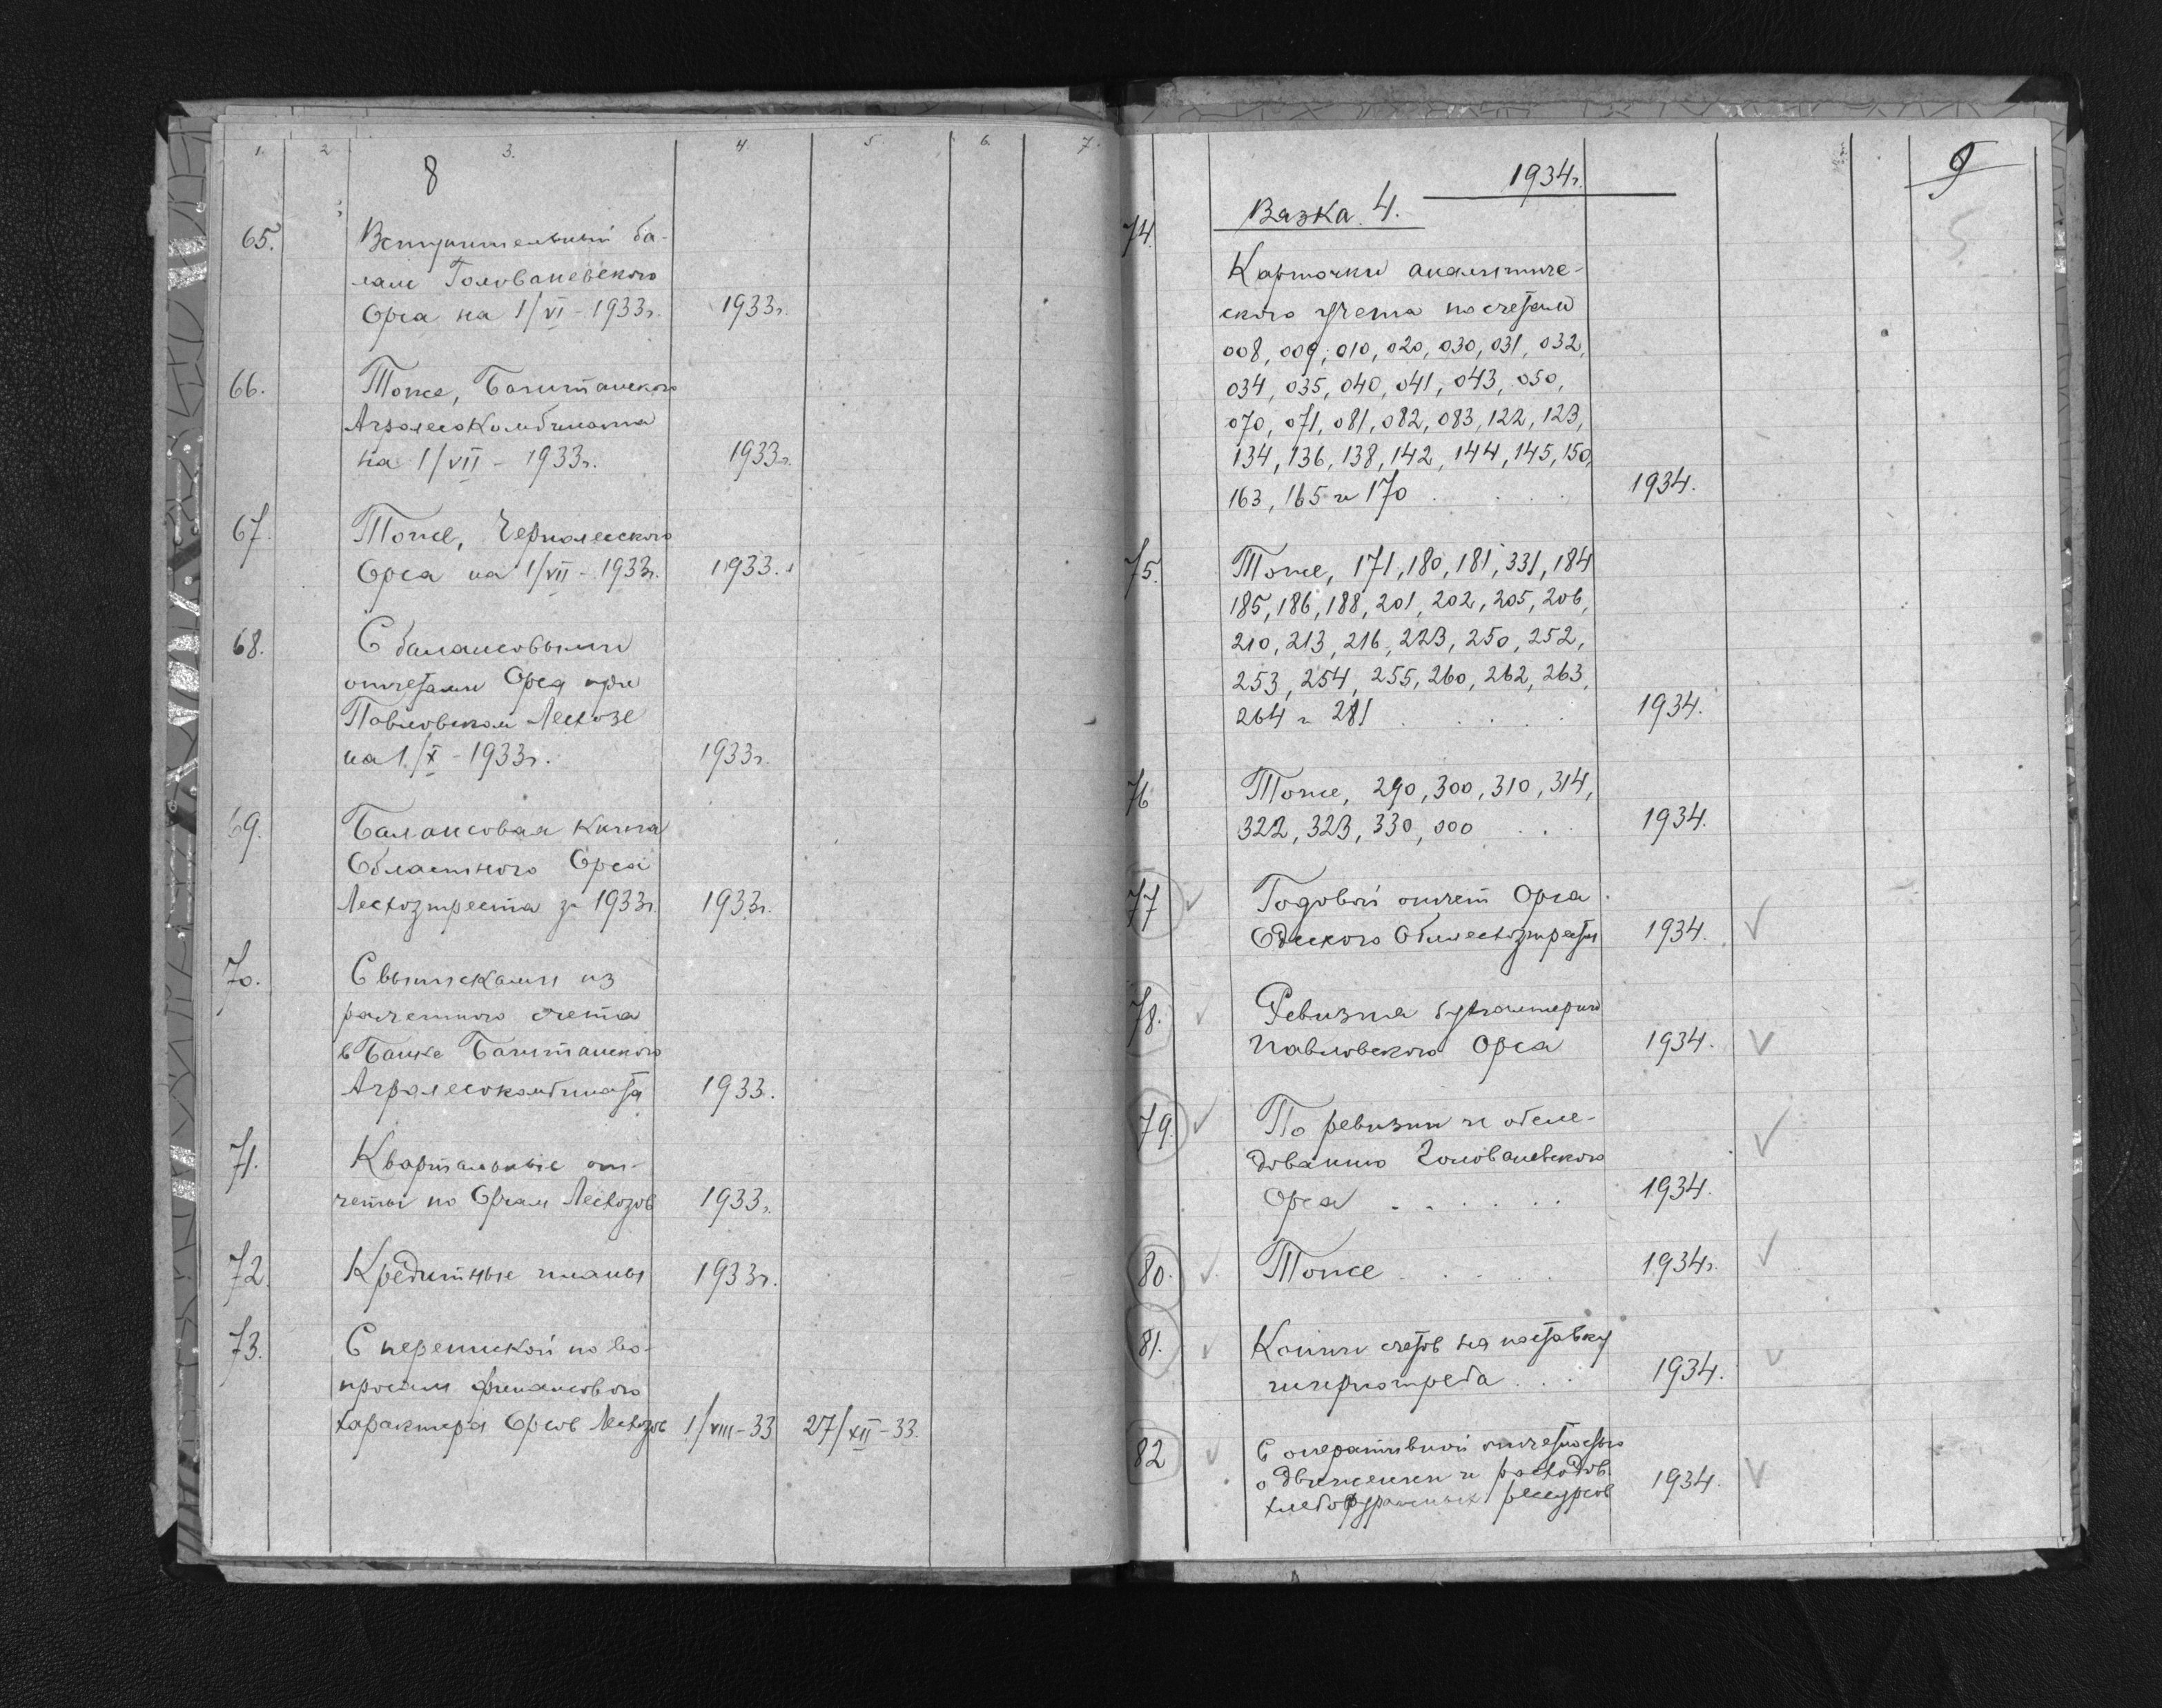 1. 2 3. 4. 5. 6. 7.
8
65. Вступительный ба-
ланс Голованевского
Орса на 1/VI - 1933г. 1933г.
66. Тоже, Багитанского
Агролескомбината
на 1/VII - 1933г. 1933г.
67. Тоже, Чернолесского
Орса на 1/VII - 1933г. 1933.
68. С балансовыми
отчетами Орса при
Павловском Лесхозе
на 1/X - 1933г. 1933г.
69. Балансовая книга
Областного Орса
Лесхозтреста за 1933г. 1933г.
70. С выписками из
расчетного счета
в Банке Багитанского
Агролесокомбината 1933.
71. Квартальные от-
четы по Орсам Лесхозов 1933г.
72. Кредитные планы 1933г.
73. С перепиской по во-
просам финансового
характера Орсов Лесхозов 1/VIII-33 27/XII-33.
9
1934г.
Вязка 4.
74.
Карточки аналитиче-
ского учета по счетам
008, 009, 010, 020, 030, 031, 032,
034, 035, 040, 041, 043, 050,
070, 071, 081, 082, 083, 122, 123,
134, 136, 138, 142, 144, 145, 150,
163, 165 и 170 . . . . 1934.
75. Тоже, 171, 180, 181, 331, 184
185, 186, 188, 201, 202, 205, 206,
210, 213, 216, 223, 250, 252,
253, 254, 255, 260, 262, 263,
264 и 281 . . . . . 1934.
76 Тоже, 290, 300, 310, 314,
322, 323, 330, 000 . . . 1934.
77 Годовой отчет Орса
Одеского Облесхозтреста 1934.
78. Ревизия бухгалтерии
Павловского Орса 1934.
79. По ревизии и обсле-
дованию Голованевского
Орса . . . . . . 1934.
80. Тоже . . . . . 1934г.
81. Копии счетов на поставку
ширпотреба . . . 1934.
82 С оперативной отчетностью
о движении и расходов.
хлебофуражных ресурсов 1934.